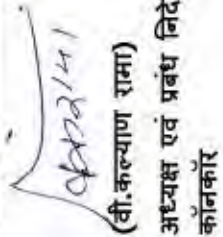 (वी.कल्याण रामा)
अध्यक्ष एवं प्रबंध निदे
कॉनकॉर